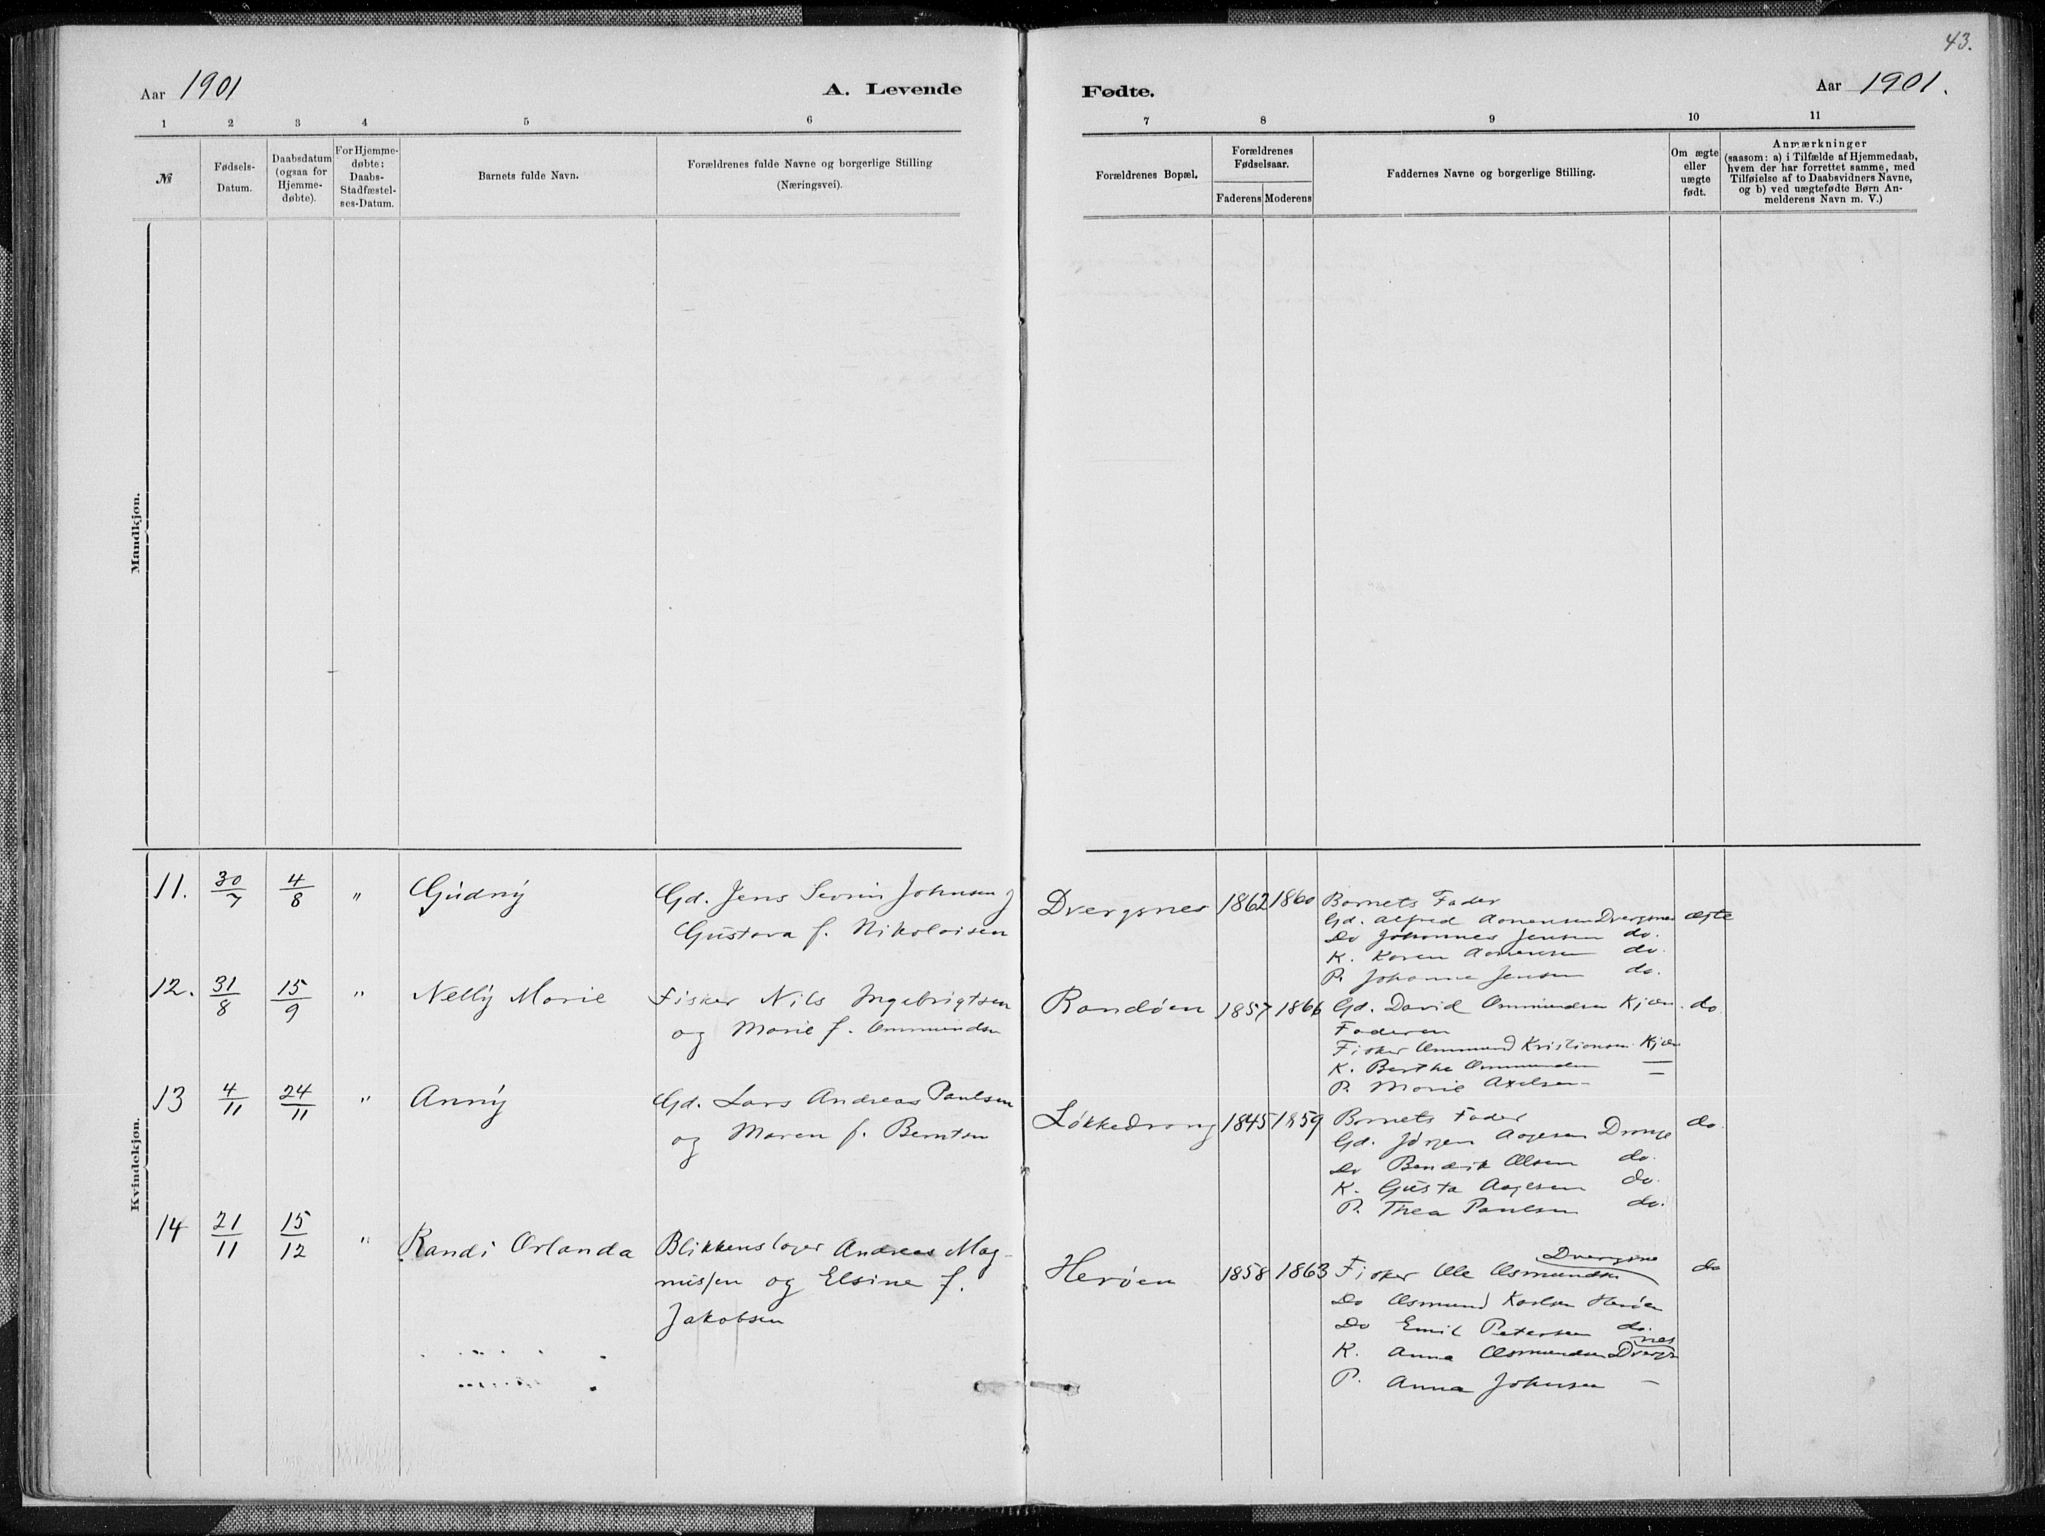 43.
Aar 1901
A. Levende
Fødte.
Aar 1901.
1 2 3 4 5 6
7 8 9 10 11
№
Fødsels-
Datum.
Daabsdatum
(ogsaa for
Hjemme-
døbte).
For Hjemme-
døbte:
Daabs-
Stadfæstel-
ses-Datum.
Barnets fulde Navn.
Forældrenes fulde Navne og borgerlige Stilling
(Næringsvei).
Forældrenes Bopæl.
Forældrenes
Fødselsaar.
Faderens Moderens
Faddernes Navne og borgerlige Stilling.
Om ægte
eller
uægte
født.
Anmærkninger
(saasom: a) i Tilfælde af Hjemmedaab,
hvem der har forrettet samme, med
Tilføielse af to Daabsvidners Navne,
og b) ved uægtefødte Børn An-
melderens Navn m. V.)
Mandkjøn.
Kvindekjøn.
11. 30/7 4/8 " Gudny
Gd. Jens Severin Johnsen og
Gustava f. Nikolaisen
Dvergsnes 1862 1860
Barnets Fader
Gd. Alfred Aanensen Dvergsnes ægte
Do Johannes Jensen do.
K. Karen Aanensen do.
P. Johanne Jensen do.
12. 31/8 15/9 " Nelly Marie
Fisker Nils Ingebrigtsen
og Marie f. Ommundsen
Randøen 1857 1866
Gd. David Ommundsen Kjær. do
Faderen
Fisker Ommund Kristiansen Kjær
K. Berthe Ommundsen —
P. Marie Axelsen —
13 4/11 24/11 " Anny
Gd. Lars Andreas Paulsen
og Maren f. Berntsen
Løkkedrang 1845 1859
Barnets Fader do
Gd. Jørgen Aagesen Drange
Do Bendik Olsen do.
K. Gusta Aagesen do.
P. Thea Paulsen do.
14 21/11 15/12 " Randi Orlanda
Blikkenslager Andreas Mag-
nussen og Elsine f.
Jakobsen
Herøen 1858 1863
Dvergsne
Fisker Ole Osmundsen do
Do Osmund Karlsen Herøen
Do Emil Petersen do.
K. Anna Osmundsen Dvergsnes
P. Anna Johnsen —